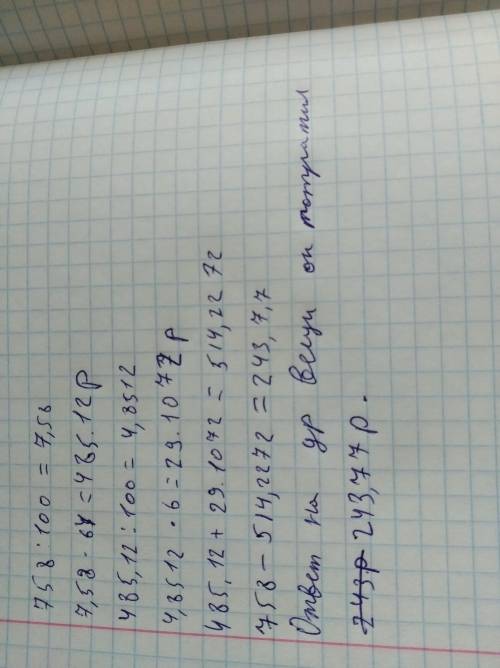 758 : 100 = 7,58
7,58 · 64 = 485,12 р
485,12 : 100 = 4,8512
4,8512 · 6 = 29.1072 р
485,12 + 29.1072 = 514,2272
758 – 514,2272 = 243,7,7
Ответ на др вещи он потратил
243р 243,77р.